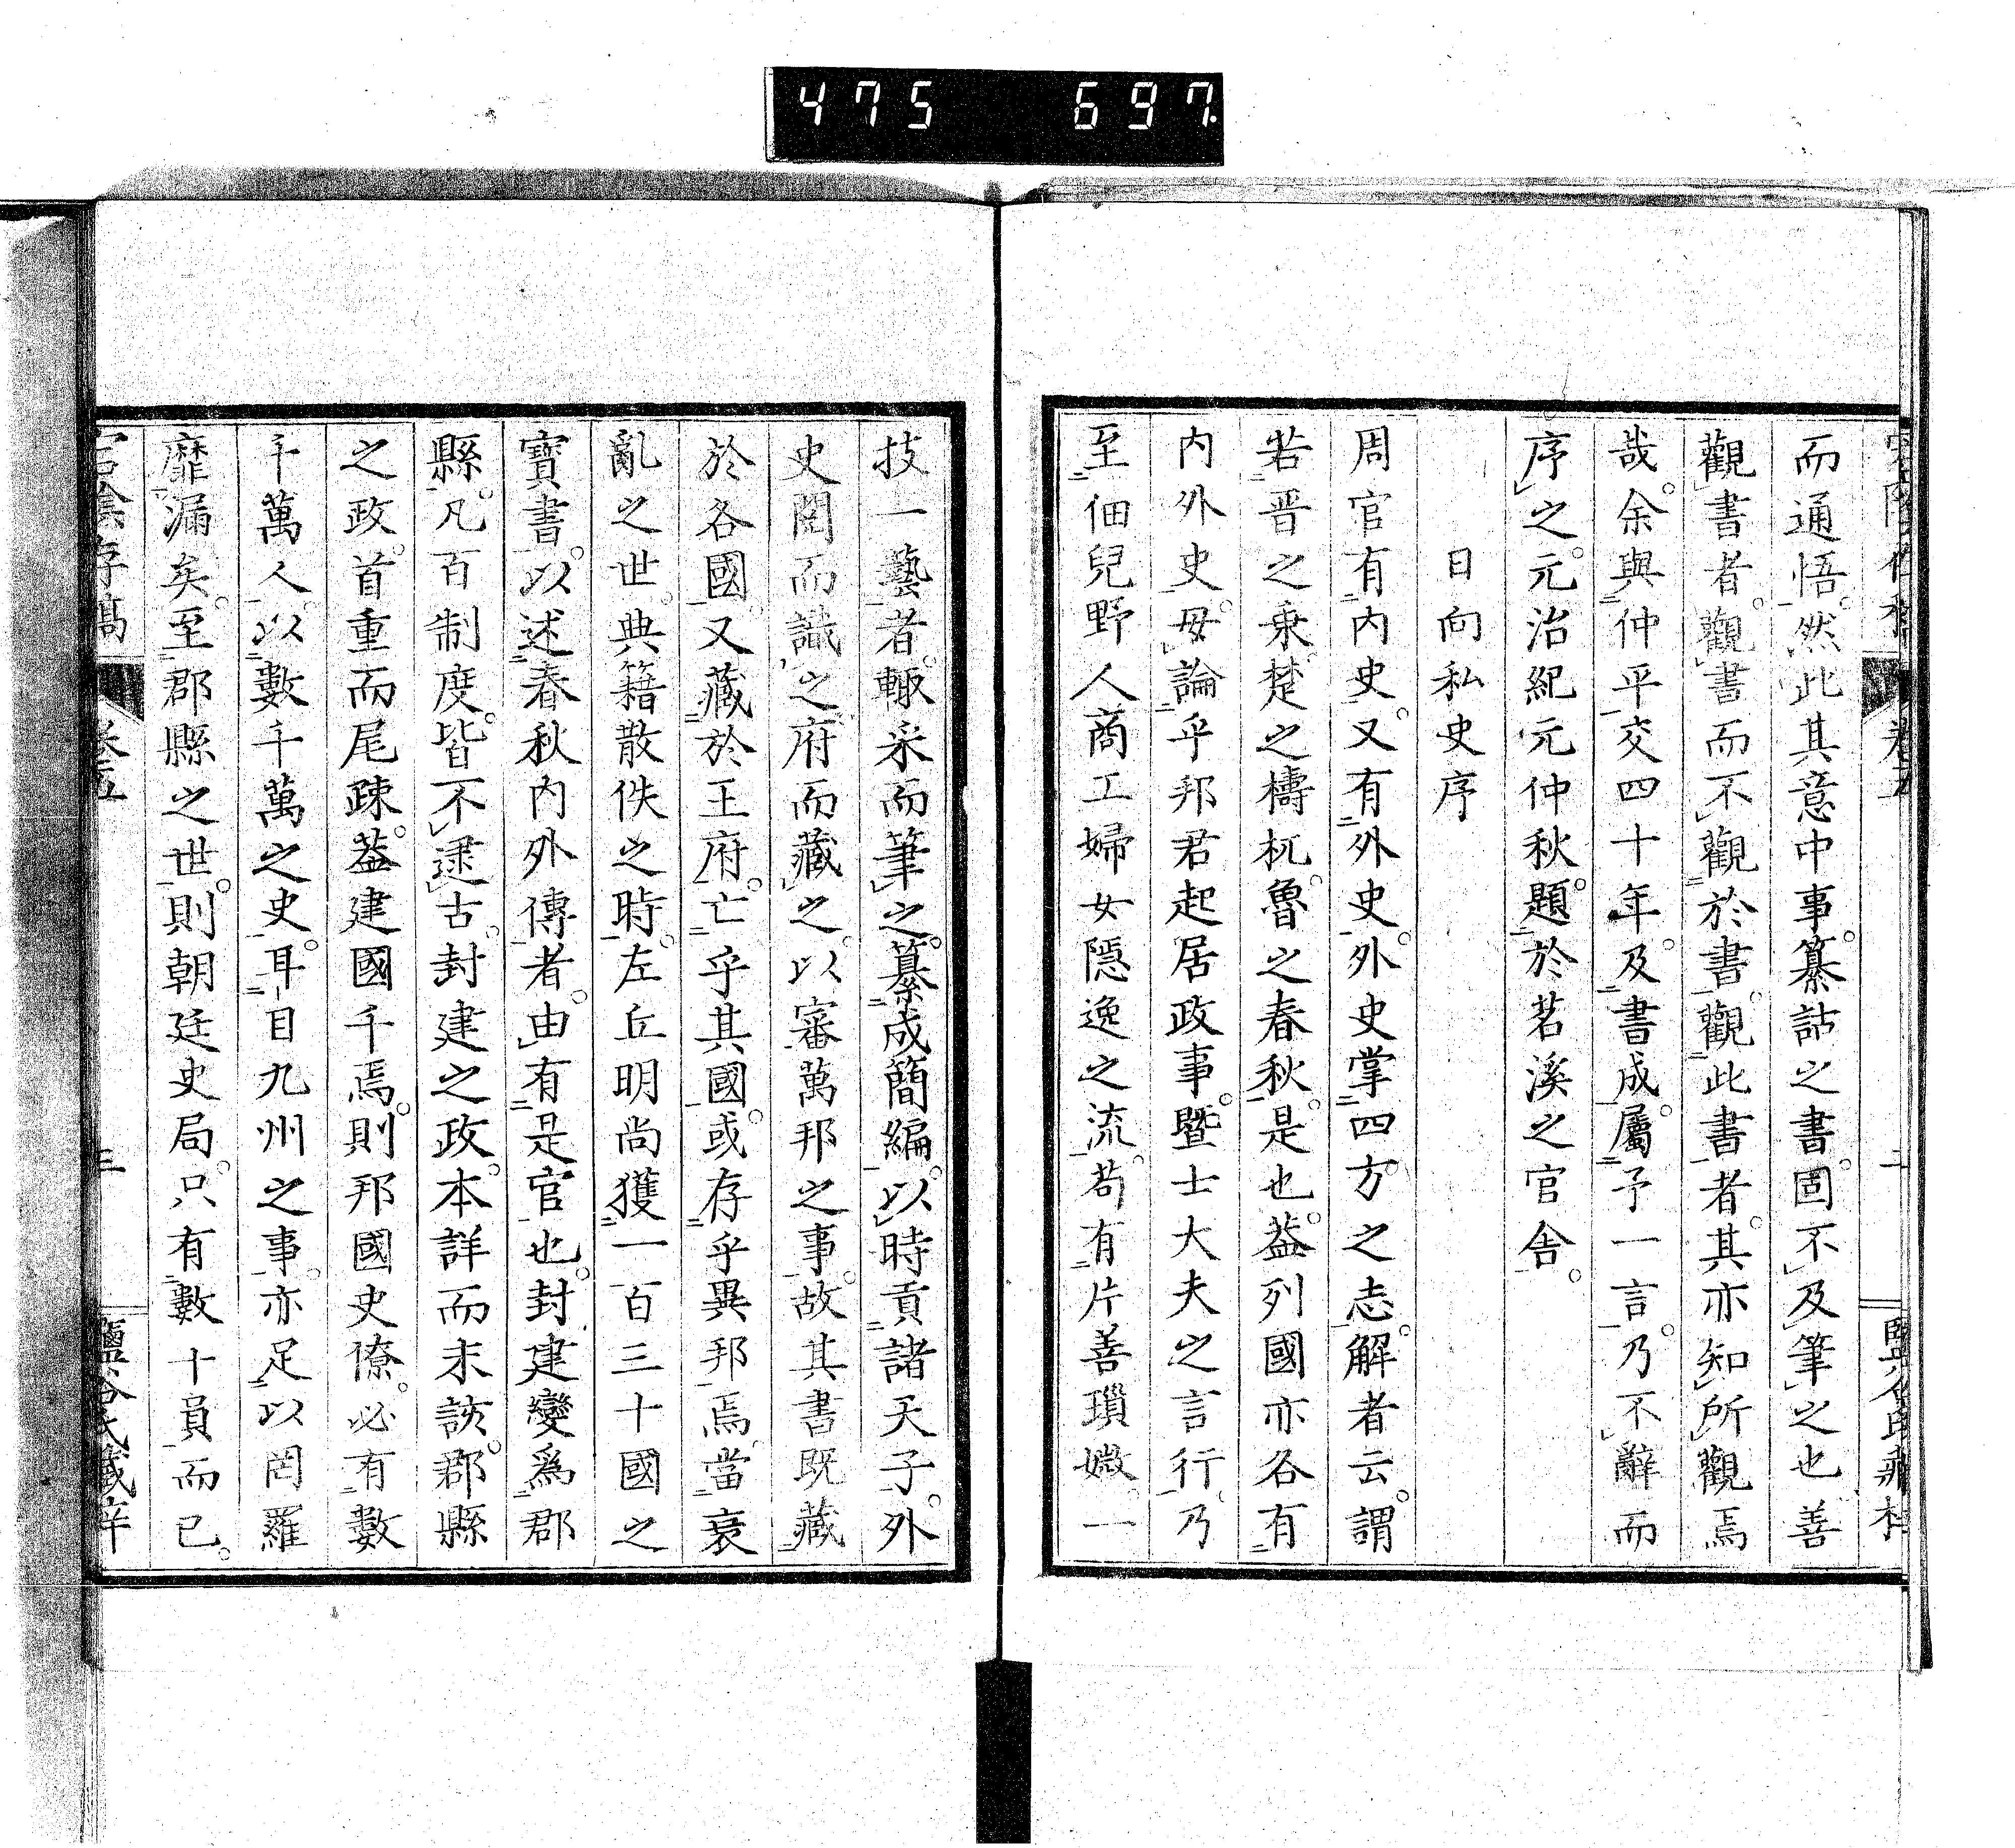 475 697.
而通悟。然此其意中事。纂詁之書。固不及筆之也善
觀書者。觀書而不觀於書。觀此書者。其亦知所觀焉
哉。余與仲平交四十年。及書成。屬予一言。乃不辭而
序之。元治紀元仲秋。題於茗溪之官舍。
日向私史序
周官有內史。又有外史。外史掌四方之志。解者云。謂
若晉之乘。楚之檮杌。魯之春秋。是也。葢列國亦各有
內外史。毋論乎邦君起居政事。暨士大夫之言行。乃
至佃兒野人商工婦女隱逸之流。苟有片善瑣媺。一
技一藝者。輙采而筆之。纂成簡編。以時貢諸天子。外
史閱而識之。府而藏之。以審萬邦之事。故其書既藏
於各國。又藏於王府。亡乎其國。或存乎異邦焉。當衰
亂之世。典籍散佚之時。左丘明尚獲一百三十國之
寶書。以述春秋內外傳者。由有是官也。封建變爲郡
縣。凡百制度。皆不逮古。封建之政。本詳而末該。郡縣
之政。首重而尾疎。葢建國千焉。則邦國史僚。必有數
千萬人。以數千萬之史。耳目九州之事。亦足以罔羅
靡漏矣。至郡縣之世。則朝廷史局。只有數十員而已。
宕陰存稿 卷五 三 鹽谷氏藏梓